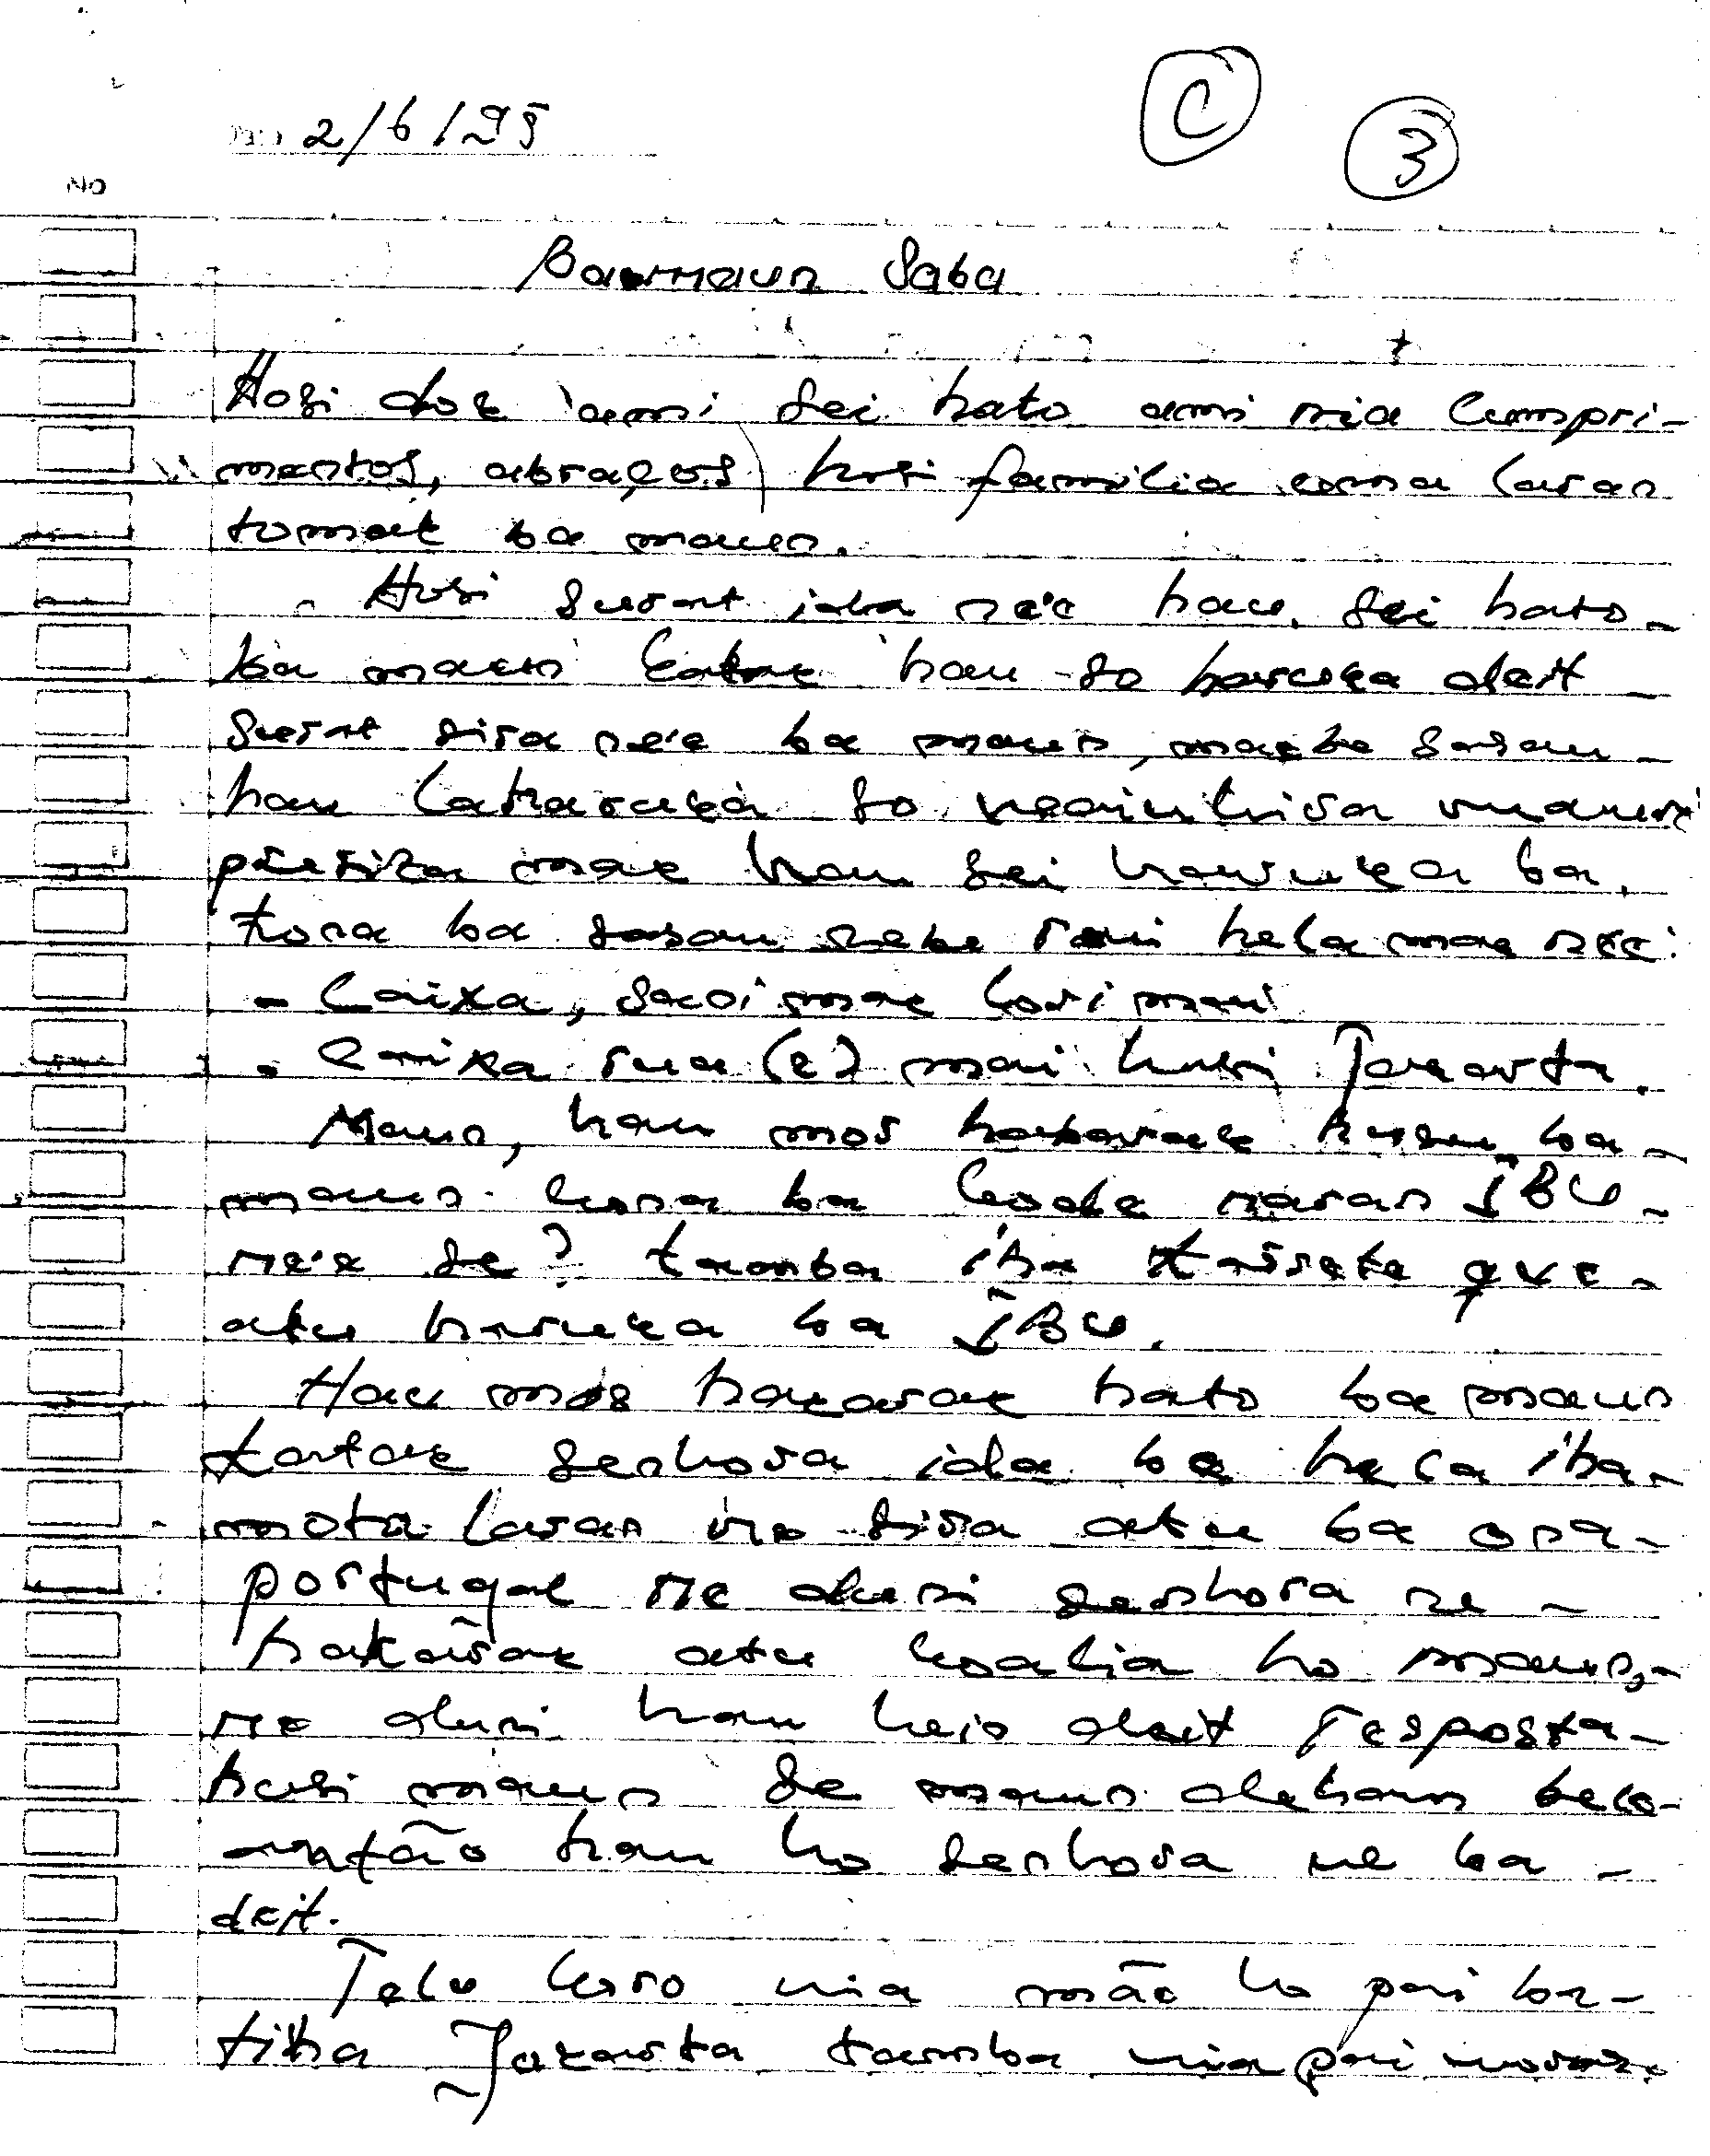 2/6/95
C
3
NO
Saba
Hosi dok ami sei hato ami nia cumpri-
mentos, abraços hosi familia uma laran
tomak ba maun.
Husi surat ida ne'e hau sei hato-
ba maun katak hau so haruka deit
surat sira ne'e ba maun, maebe sasan
hau la haruka so
mak hau sei haruka ba.
kona ba sasan nebe rai hela mak ne'e:
- Caixa, mak lori mai
- Caixa rua (2) mai husi Jakarta.
Maun, hau mos hakarak husu ba-
maun kona ba kode naran IBU-
ne'e se? tamba iha kassete que-
atu haruka ba IBU.
Hau mos hakarak hato ba maun
katak senhora ida be hela iha-
mota laran no sira atu ba ona-
portugal ne duni senhora ne-
hakarak atu koalia ho maun,-
ne duni hau hein deit resposta-
husi maun se maun dehan bele-
então hau ho senhora ne ba-
deit.
Telo koro nia mãe ho pai ba-
tiha Jakarta tamba nia pai moras.